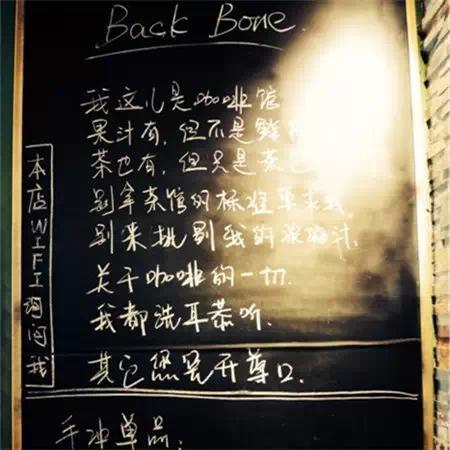 Back Bone.
我这儿是咖啡馆
果汁有，但不是鲜
茶也有，但只是茶
别拿茶馆的标准要求我.
别来挑剔我的酸梅汁.
关于咖啡的一切.
我都洗耳恭听.
其它 开尊口.
手冲单品：
本店WIFI 问我